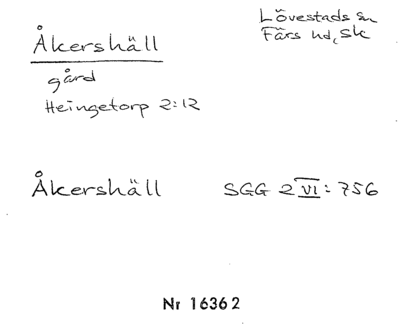 Åkershäll
Lövestads sn
Färs hd, Sk
gård
Heingetorp 2:12
Åkershäll SGG 2 VI: 756
Nr 16362